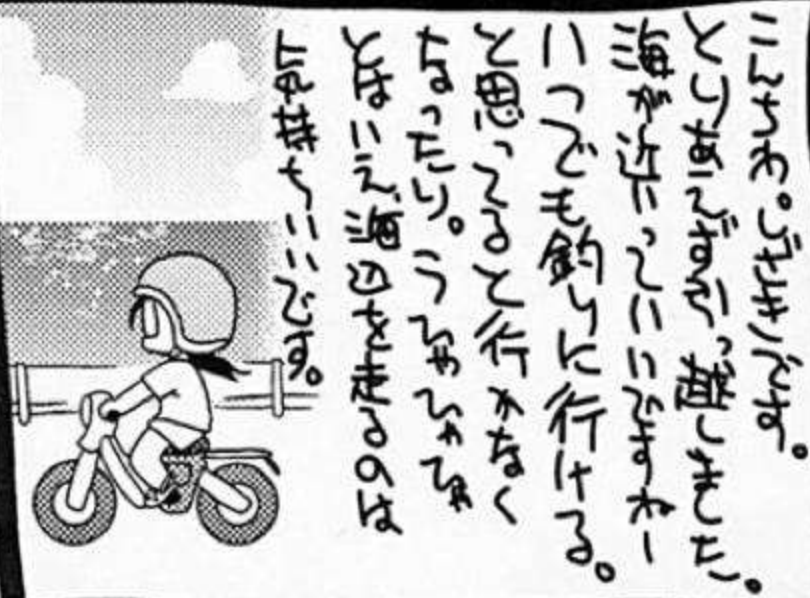 こんちわ。しざきです。
とりあえず引っ越しました。
海が近いっていいですねー
いつでも釣りに行ける。
と思ってると行かなく
なったり。うひゃひゃひゃ
とはいえ、海辺を走るのは
気持ちいいです。